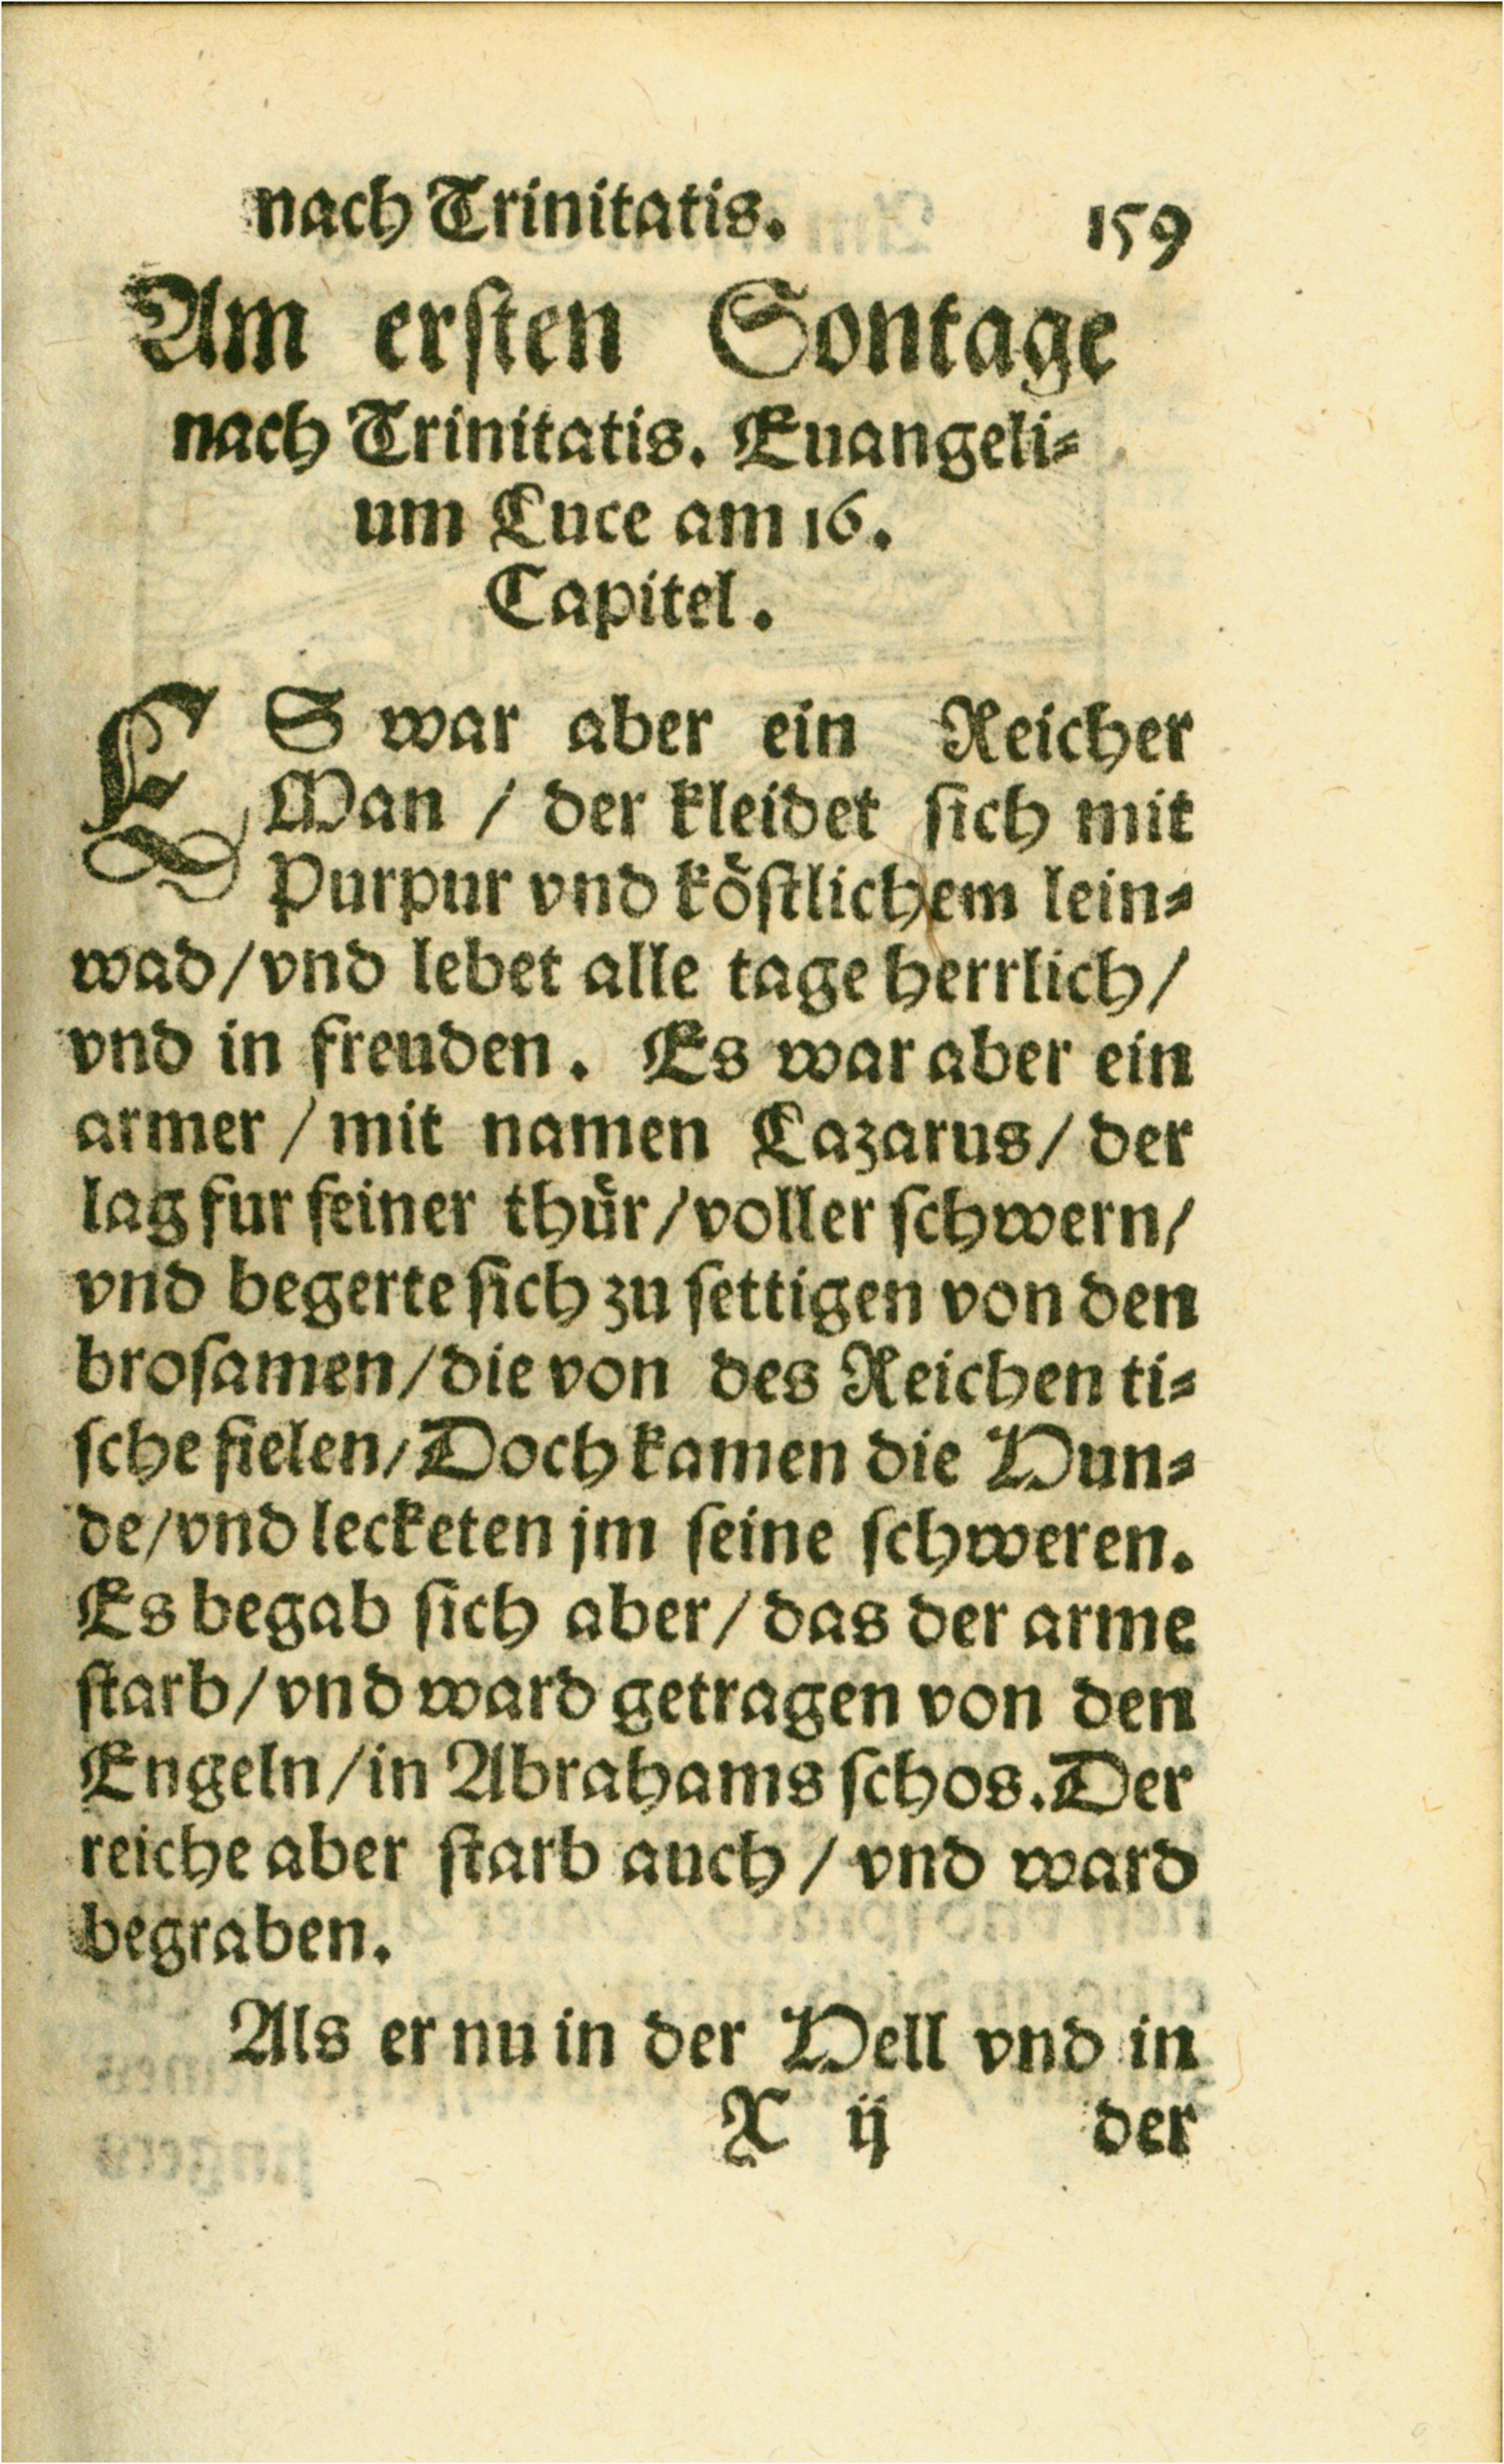 nach Trinitatis. 159
Am ersten Sontage
nach Trinitatis. Euangeli⸗
um Luce am 16.
Capitel.
ES war aber ein Reicher
Man / der kleidet sich mit
Purpur vnd köstlichem lein⸗
wad/vnd lebet alle tage herrlich/
vnd in freuden. Es war aber ein
armer / mit namen Lazarus/ der
lag fur seiner thür/voller schwern/
vnd begerte sich zu settigen von den
brosamen/die von des Reichen ti⸗
sche fielen/Doch kamen die Hun⸗
de/vnd lecketen jm seine schweren.
Es begab sich aber/ das der arme
starb/vnd ward getragen von den
Engeln/in Abrahams schos. Der
reiche aber starb auch / vnd ward
begraben.
Als er nu in der Hell vnd in
X ij der